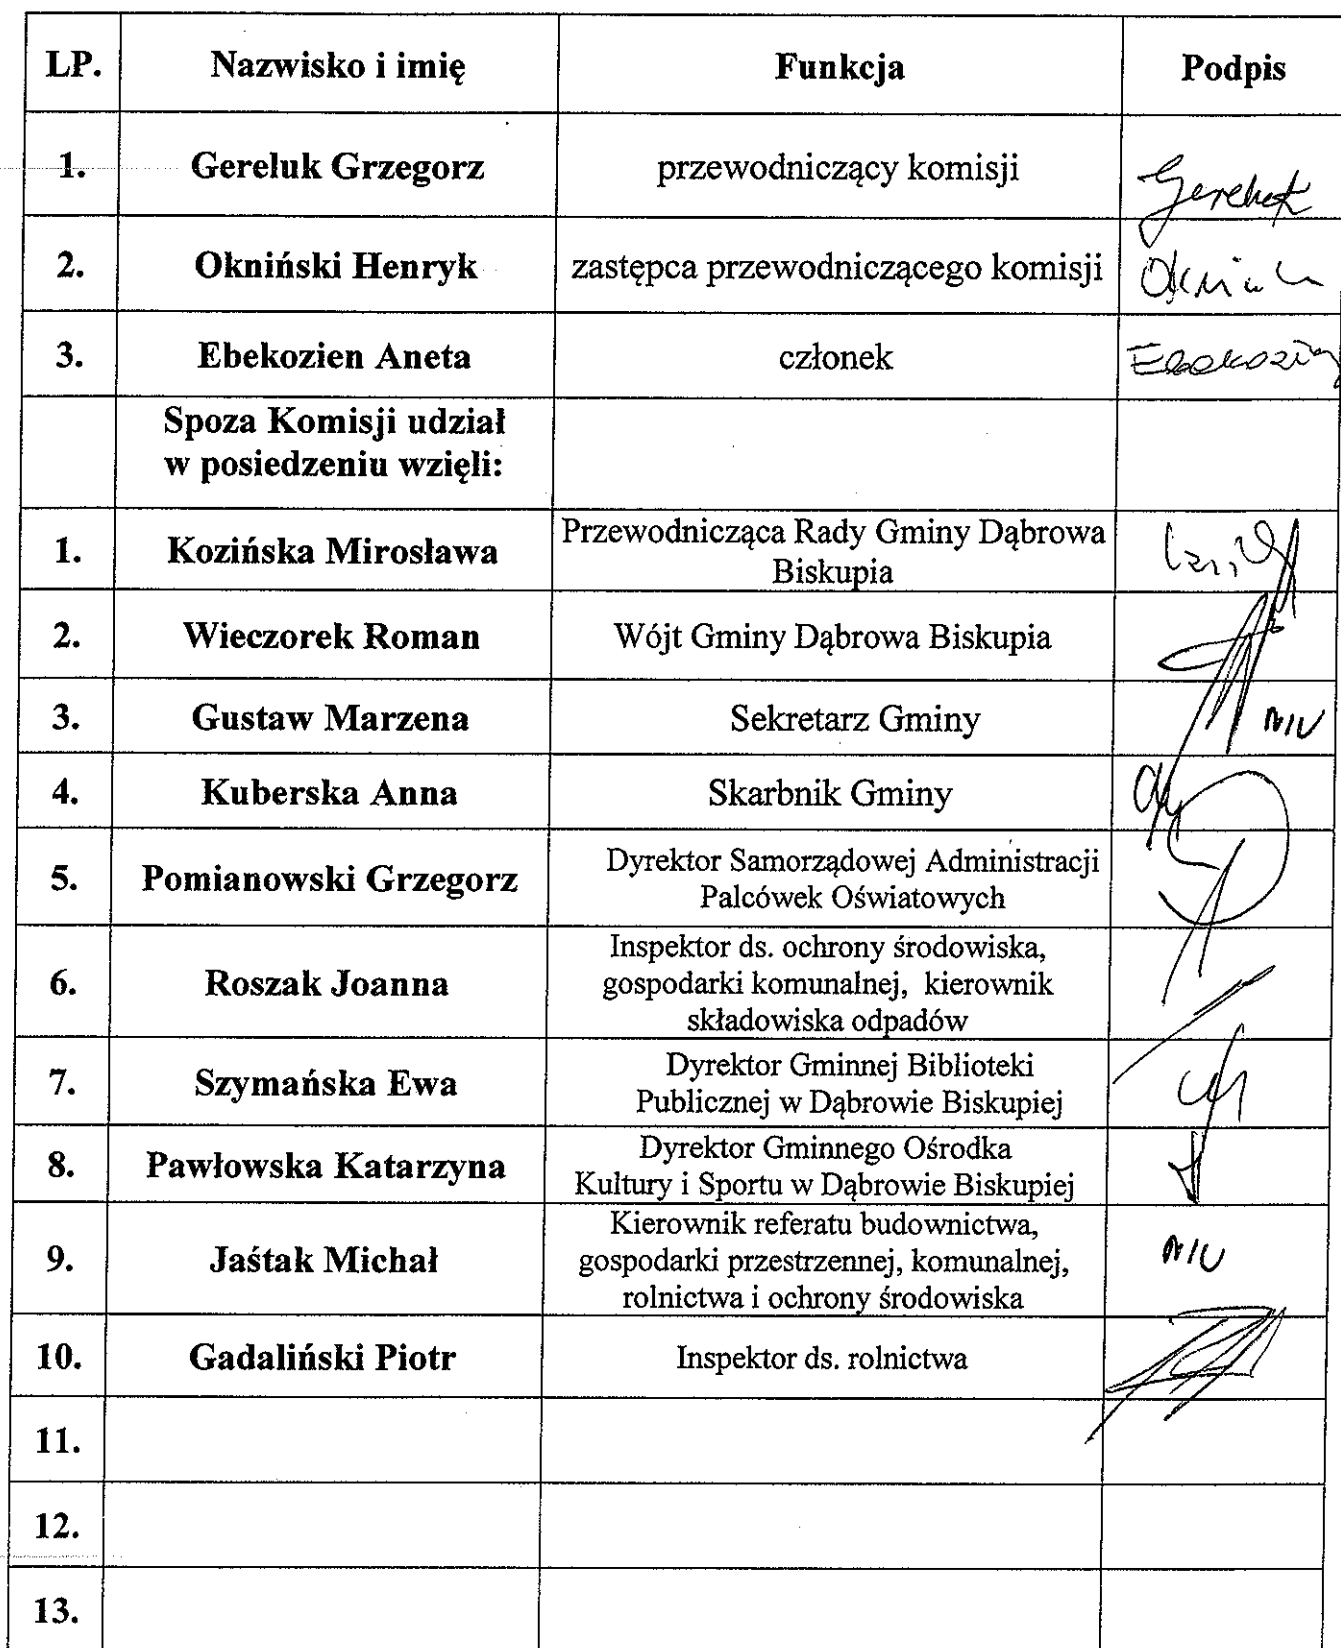 LP. Nazwisko i imię Funkcja Podpis
1. Gereluk Grzegorz przewodniczący komisji Gereluk
2. Okniński Henryk zastępca przewodniczącego komisji
3. Ebekozien Aneta członek
Spoza Komisji udział
w posiedzeniu wzięli:
1. Kozińska Mirosława Przewodnicząca Rady Gminy Dąbrowa
Biskupia
2. Wieczorek Roman Wójt Gminy Dąbrowa Biskupia
3. Gustaw Marzena Sekretarz Gminy
4. Kuberska Anna Skarbnik Gminy
5. Pomianowski Grzegorz Dyrektor Samorządowej Administracji
Palcówek Oświatowych
6. Roszak Joanna Inspektor ds. ochrony środowiska,
gospodarki komunalnej, kierownik
składowiska odpadów
7. Szymańska Ewa Dyrektor Gminnej Biblioteki
Publicznej w Dąbrowie Biskupiej
8. Pawłowska Katarzyna Dyrektor Gminnego Ośrodka
Kultury i Sportu w Dąbrowie Biskupiej
9. Jaśtak Michał Kierownik referatu budownictwa,
gospodarki przestrzennej, komunalnej,
rolnictwa i ochrony środowiska
10. Gadaliński Piotr Inspektor ds. rolnictwa
11.
12.
13.